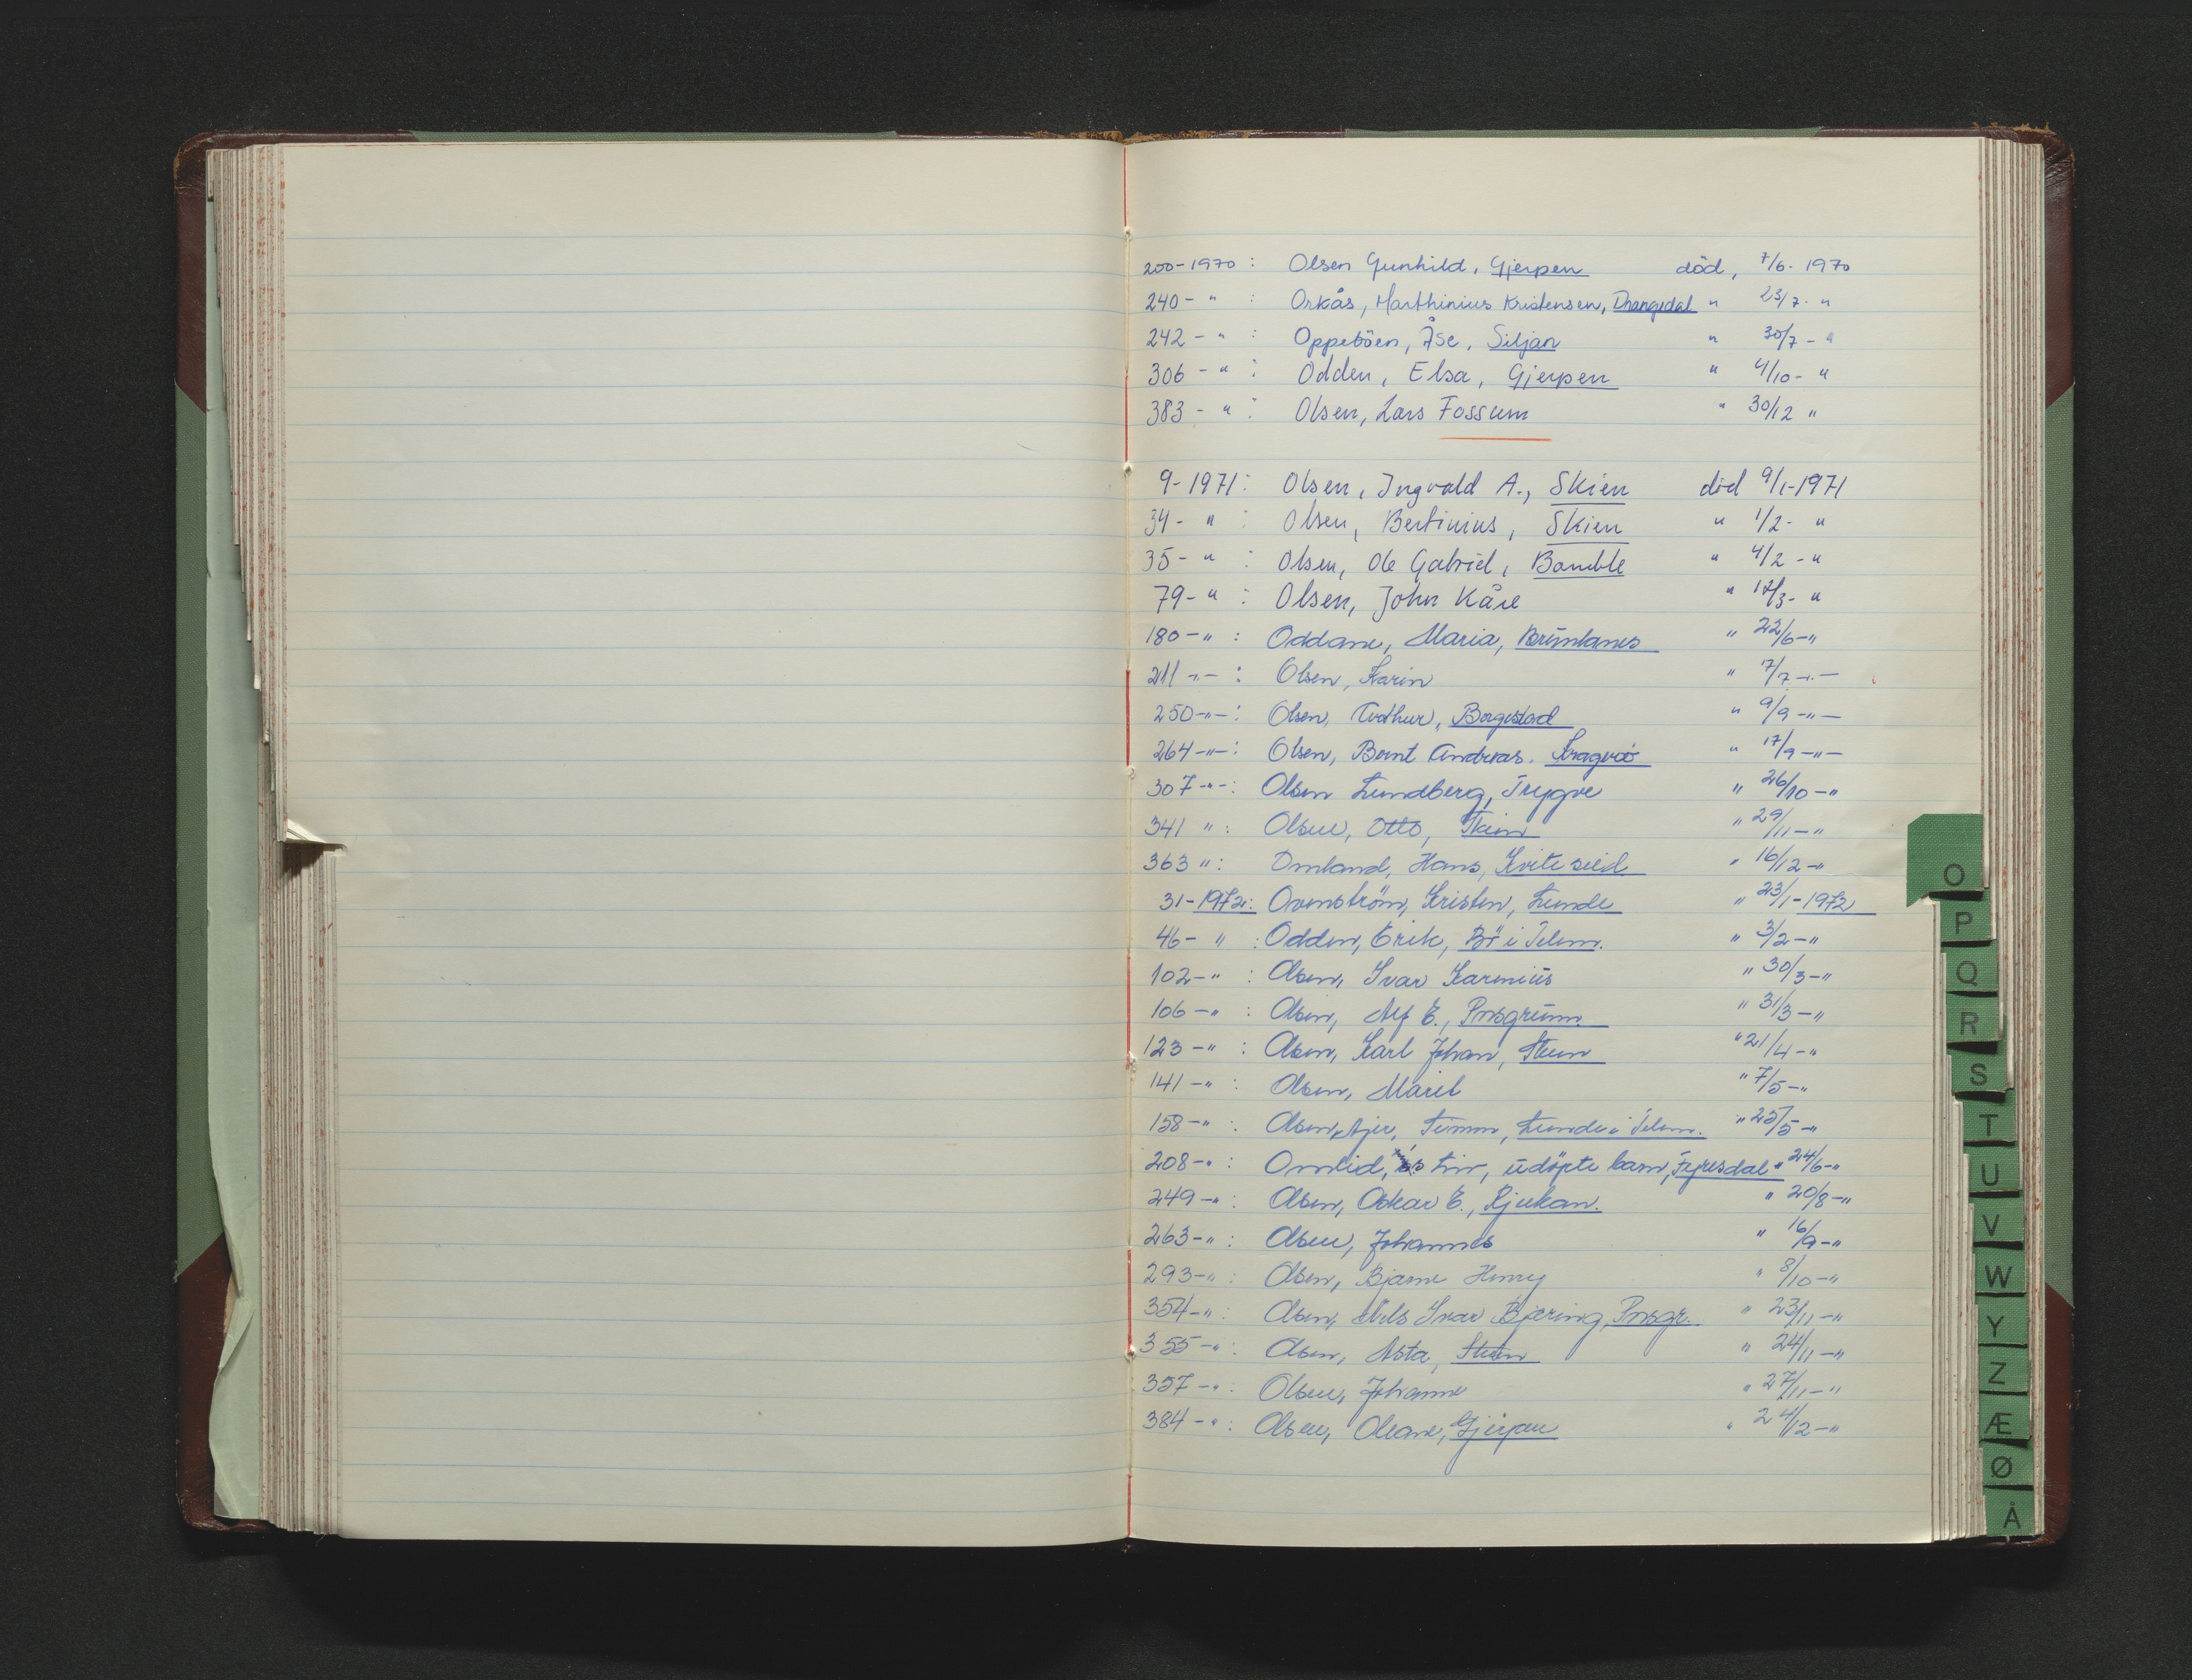 200-1970: Olsen Gunhild, Gjerpen död, 7/6- 1970
240- " : Orkås, Marthinius Kristensen, Drangedal " 23/7- "
242- " : Oppeböen, Åse, Siljan " 30/7- "
306- " : Odden, Elsa, Gjerpen " 4/10- "
383- " : Olsen, Lars Fossum " 30/12 "
9-1971: Olsen, Ingvald A., Skien död 9/1-1971
34- " : Olsen, Bertinius, Skien " 1/2- "
35- " : Olsen, Ole Gabriel, Bamble " 4/2- "
79- " : Olsen, John Kåre " 17/3- "
180-" : Oddane, Maria, Brunlanes " 22/6-"
211-"- : Olsen, Karin " 17/7-"-
250-"-: Olsen, Arthur, Borgestad " 9/9-"-
264-"-: Olsen, Bernt Andreas. Kragerø " 17/9-"-
307-"-: Olsen Lundberg, Trygve " 26/10-"
341 " : Olsen, Otto, Skien " 29/11-"
363 " : Omland, Hans, Kviteseid " 16/12-"
31-1972: Kristen, Lunde " 23/1-1972
46- " : Odden, Erik, Bø i Telem. " 3/2-"
102-" : Olsen, Ivar Karenius " 30/3-"
106-" : Olsen, Alf E., Porsgrunn. " 31/3-"
123-" : Olsen, Karl Johan, Skien " 21/4-"
141-" : Olsen, Marit " 7/5-"
158-" : Olsen, Lunde i Telem. " 25/5-"
208-" : Omlid, udöpte barn, Fyresdal " 24/6-"
249-" : Olsen, Oskar E., Rjukan. " 20/8-"
263-" : Olsen, Johannes " 16/9-"
293-" : Olsen, Bjarne Henry " 8/10-"
354-" : Olsen, Nils Ivar Bjering, Porsgr. " 23/11-"
355-" : Olsen, Asta, Skien " 24/11-"
357-" : Olsen, Johanne " 27/11-"
384-" : Olsen, Oleane, Gjerpen " 24/12-"
O
P
Q
R
S
T
U
V
W
Y
Z
Æ
Ø
Å